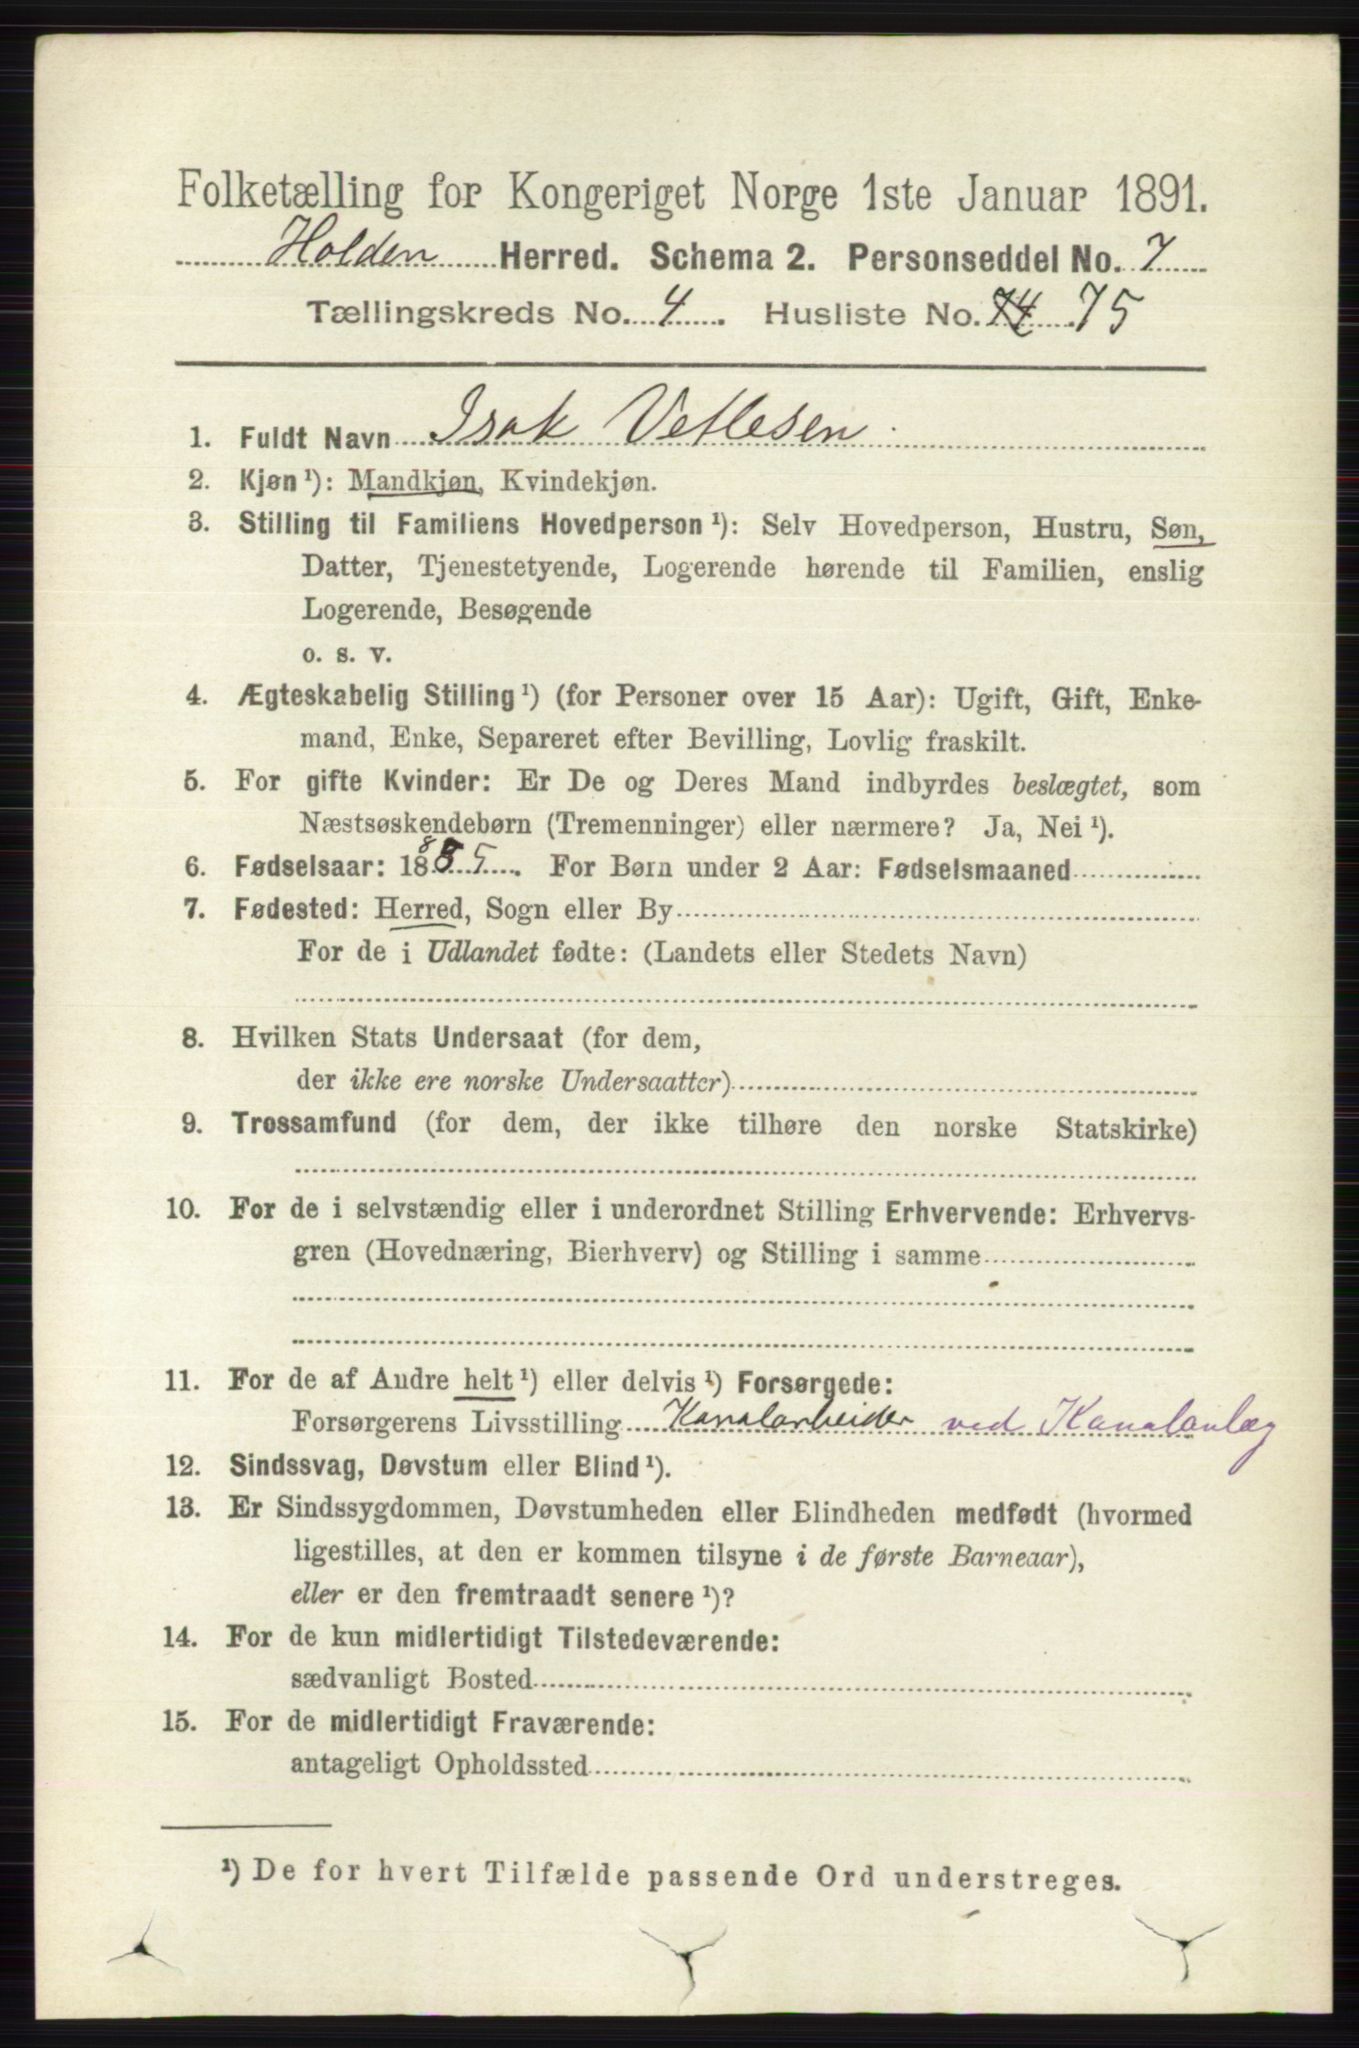 Folketælling for Kongeriget Norge 1ste Januar 1891.
Holden Herred. Schema 2. Personseddel No. 7
Tællingskreds No. 4. Husliste No. 74 75
1. Fuldt Navn Isak Vetlesen
2. Kjøn ¹): Mandkjøn, Kvindekjøn.
3. Stilling til Familiens Hovedperson ¹): Selv Hovedperson, Hustru, Søn,
Datter, Tjenestetyende, Logerende hørende til Familien, enslig
Logerende, Besøgende
o. s. v.
4. Ægteskabelig Stilling ¹) (for Personer over 15 Aar): Ugift, Gift, Enke-
mand, Enke, Separeret efter Bevilling, Lovlig fraskilt.
5. For gifte Kvinder: Er De og Deres Mand indbyrdes beslægtet, som
Næstsøskendebørn (Tremenninger) eller nærmere? Ja, Nei ¹).
6. Fødselsaar: 1885. For Børn under 2 Aar: Fødselsmaaned
7. Fødested: Herred, Sogn eller By
For de i Udlandet fødte: (Landets eller Stedets Navn)
8. Hvilken Stats Undersaat (for dem,
der ikke ere norske Undersaatter)
9. Trossamfund (for dem, der ikke tilhøre den norske Statskirke)
10. For de i selvstændig eller i underordnet Stilling Erhvervende: Erhvervs-
gren (Hovednæring, Bierhverv) og Stilling i samme
11. For de af Andre helt ¹) eller delvis ¹) Forsørgede:
Forsørgerens Livsstilling Kanalarbeider ved Kanalanlæg
12. Sindssvag, Døvstum eller Blind ¹).
13. Er Sindssygdommen, Døvstumheden eller Blindheden medfødt (hvormed
ligestilles, at den er kommen tilsyne i de første Barneaar),
eller er den fremtraadt senere ¹)?
14. For de kun midlertidigt Tilstedeværende:
sædvanligt Bosted
15. For de midlertidigt Fraværende:
antageligt Opholdssted
¹) De for hvert Tilfælde passende Ord understreges.